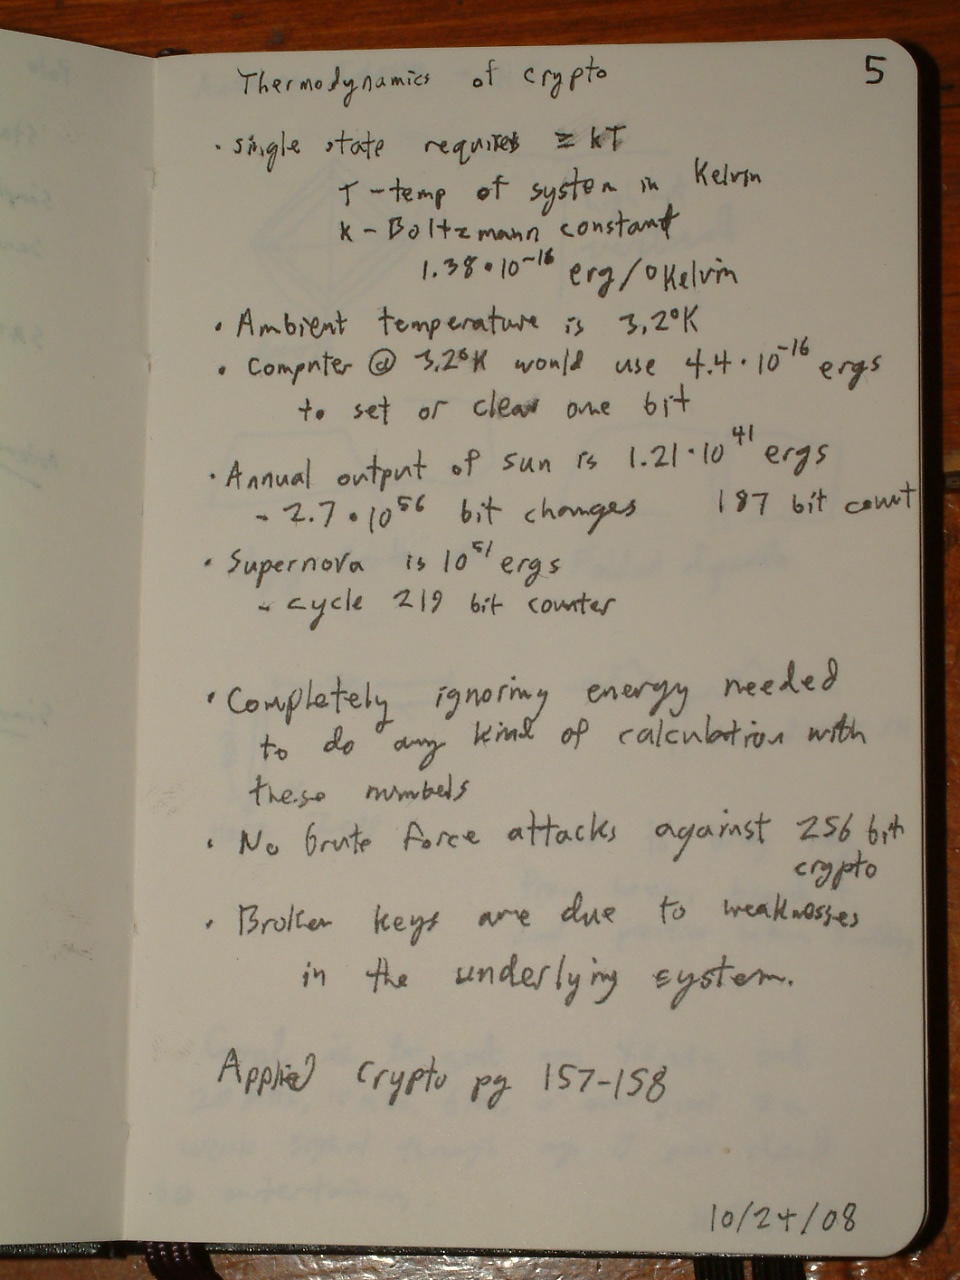 5
Thermodynamics of crypto
· single state requires ≥ kT
T - temp of system in Kelvin
k - Boltzmann constant
1.38 · 10^-16 erg/°Kelvin
· Ambient temperature is 3.2°K
· Computer @ 3.2°K would use 4.4 · 10^-16 ergs
to set or clear one bit
· Annual output of sun is 1.21 · 10^41 ergs
- 2.7 · 10^56 bit changes 187 bit count
· Supernova is 10^51 ergs
- cycle 219 bit counter
· Completely ignoring energy needed
to do any kind of calculation with
these numbers
· No brute force attacks against 256 bit
crypto
· Broken keys are due to weaknesses
in the underlying system.
Applied Crypto pg 157-158
10/24/08